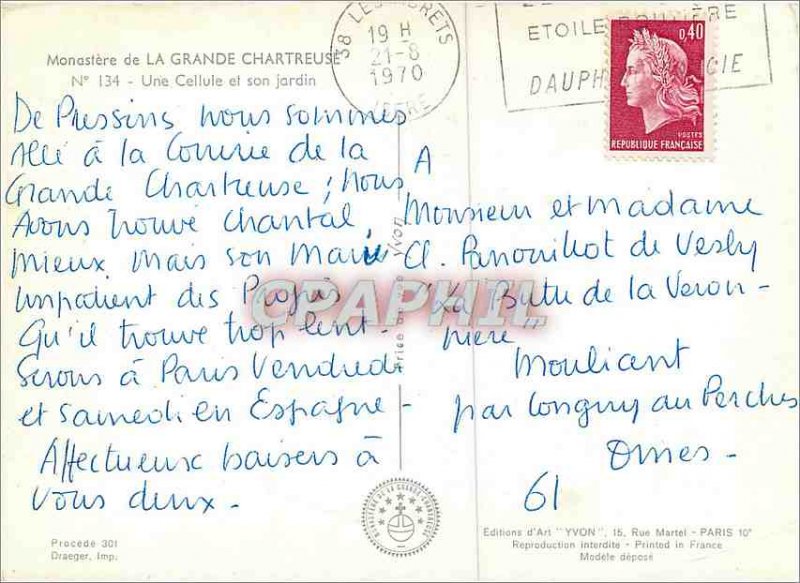 Monastère de LA GRANDE CHARTREUSE
N° 134 - Une Cellule et son jardin
38 LES ABRETS
19 H
21-8
1970
ISERE
ETOILE ROUTIERE
DAUPH CIE
0,40
POSTES
REPUBLIQUE FRANÇAISE
De Pressins nous sommes
allé à la Courrerie de la
Grande Chartreuse ; nous
avons trouvé Chantal,
mieux mais son Mari
impatient des Progrès
Qu'il trouve trop lent -
Serons à Paris Vendredi
et samedi en Espagne -
Affectueux baisers à
vous deux -
A
Monsieur et madame
Cl. Panouillot de Vesly
"La Butte de la Veron-
nière"
Mouliant
par Longny au Perche
Ornes -
61
YVON
CPAPHIL
MONASTERE DE LA GRANDE CHARTREUSE
Procédé 301
Draeger, Imp.
Editions d'Art "YVON", 15, Rue Martel - PARIS 10e
Reproduction interdite - Printed in France
Modèle déposé